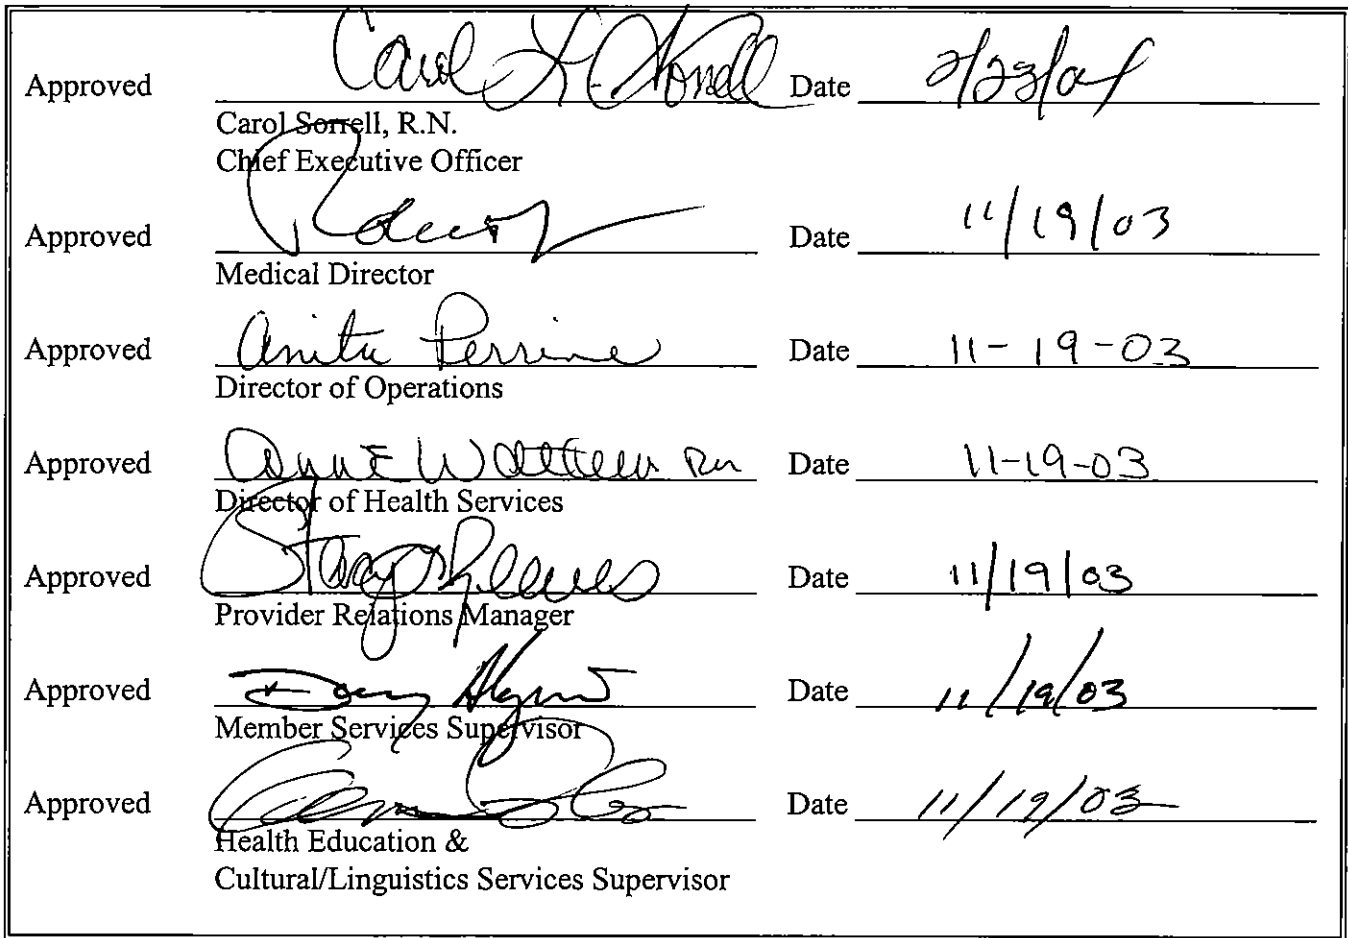 Approved Carol L. Sorrell Date 2/23/04
Carol Sorrell, R.N.
Chief Executive Officer
Approved Date 11/19/03
Medical Director
Approved Anita Perrine Date 11-19-03
Director of Operations
Approved Date 11-19-03
Director of Health Services
Approved Stacy Date 11/19/03
Provider Relations Manager
Approved Date 11/19/03
Member Services Supervisor
Approved Date 11/19/03
Health Education &
Cultural/Linguistics Services Supervisor